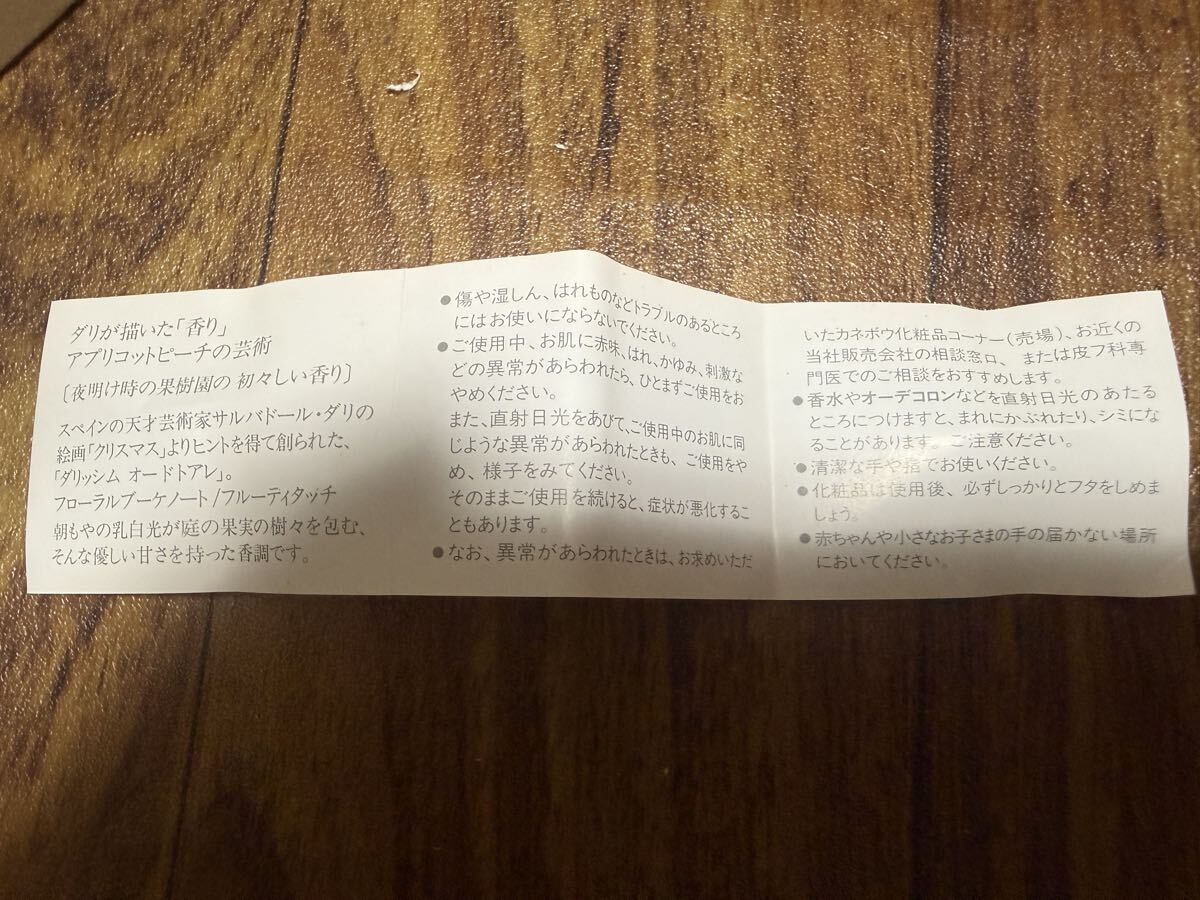 ダリが描いた「香り」
アプリコットピーチの芸術
〔夜明け時の果樹園の 初々しい香り〕
スペインの天才芸術家サルバドール・ダリの
絵画「クリスマス」よりヒントを得て創られた、
「ダリッシム オードトアレ」。
フローラルブーケノート/フルーティタッチ
朝もやの乳白光が庭の果実の樹々を包む、
そんな優しい甘さを持った香調です。
●傷や湿しん、はれものなどトラブルのあるところ
にはお使いにならないでください。
●ご使用中、お肌に赤味、はれ、かゆみ、刺激な
どの異常があらわれたら、ひとまずご使用をお
やめください。
また、直射日光をあびて、ご使用中のお肌に同
じような異常があらわれたときも、ご使用をや
め、様子をみてください。
そのままご使用を続けると、症状が悪化するこ
ともあります。
●なお、異常があらわれたときは、お求めいただ
いたカネボウ化粧品コーナー(売場)、お近くの
当社販売会社の相談窓口、または皮フ科専
門医でのご相談をおすすめします。
●香水やオーデコロンなどを直射日光のあたる
ところにつけますと、まれにかぶれたり、シミにな
ることがあります。ご注意ください。
●清潔な手や指でお使いください。
●化粧品は使用後、必ずしっかりとフタをしめま
しょう。
●赤ちゃんや小さなお子さまの手の届かない場所
においてください。